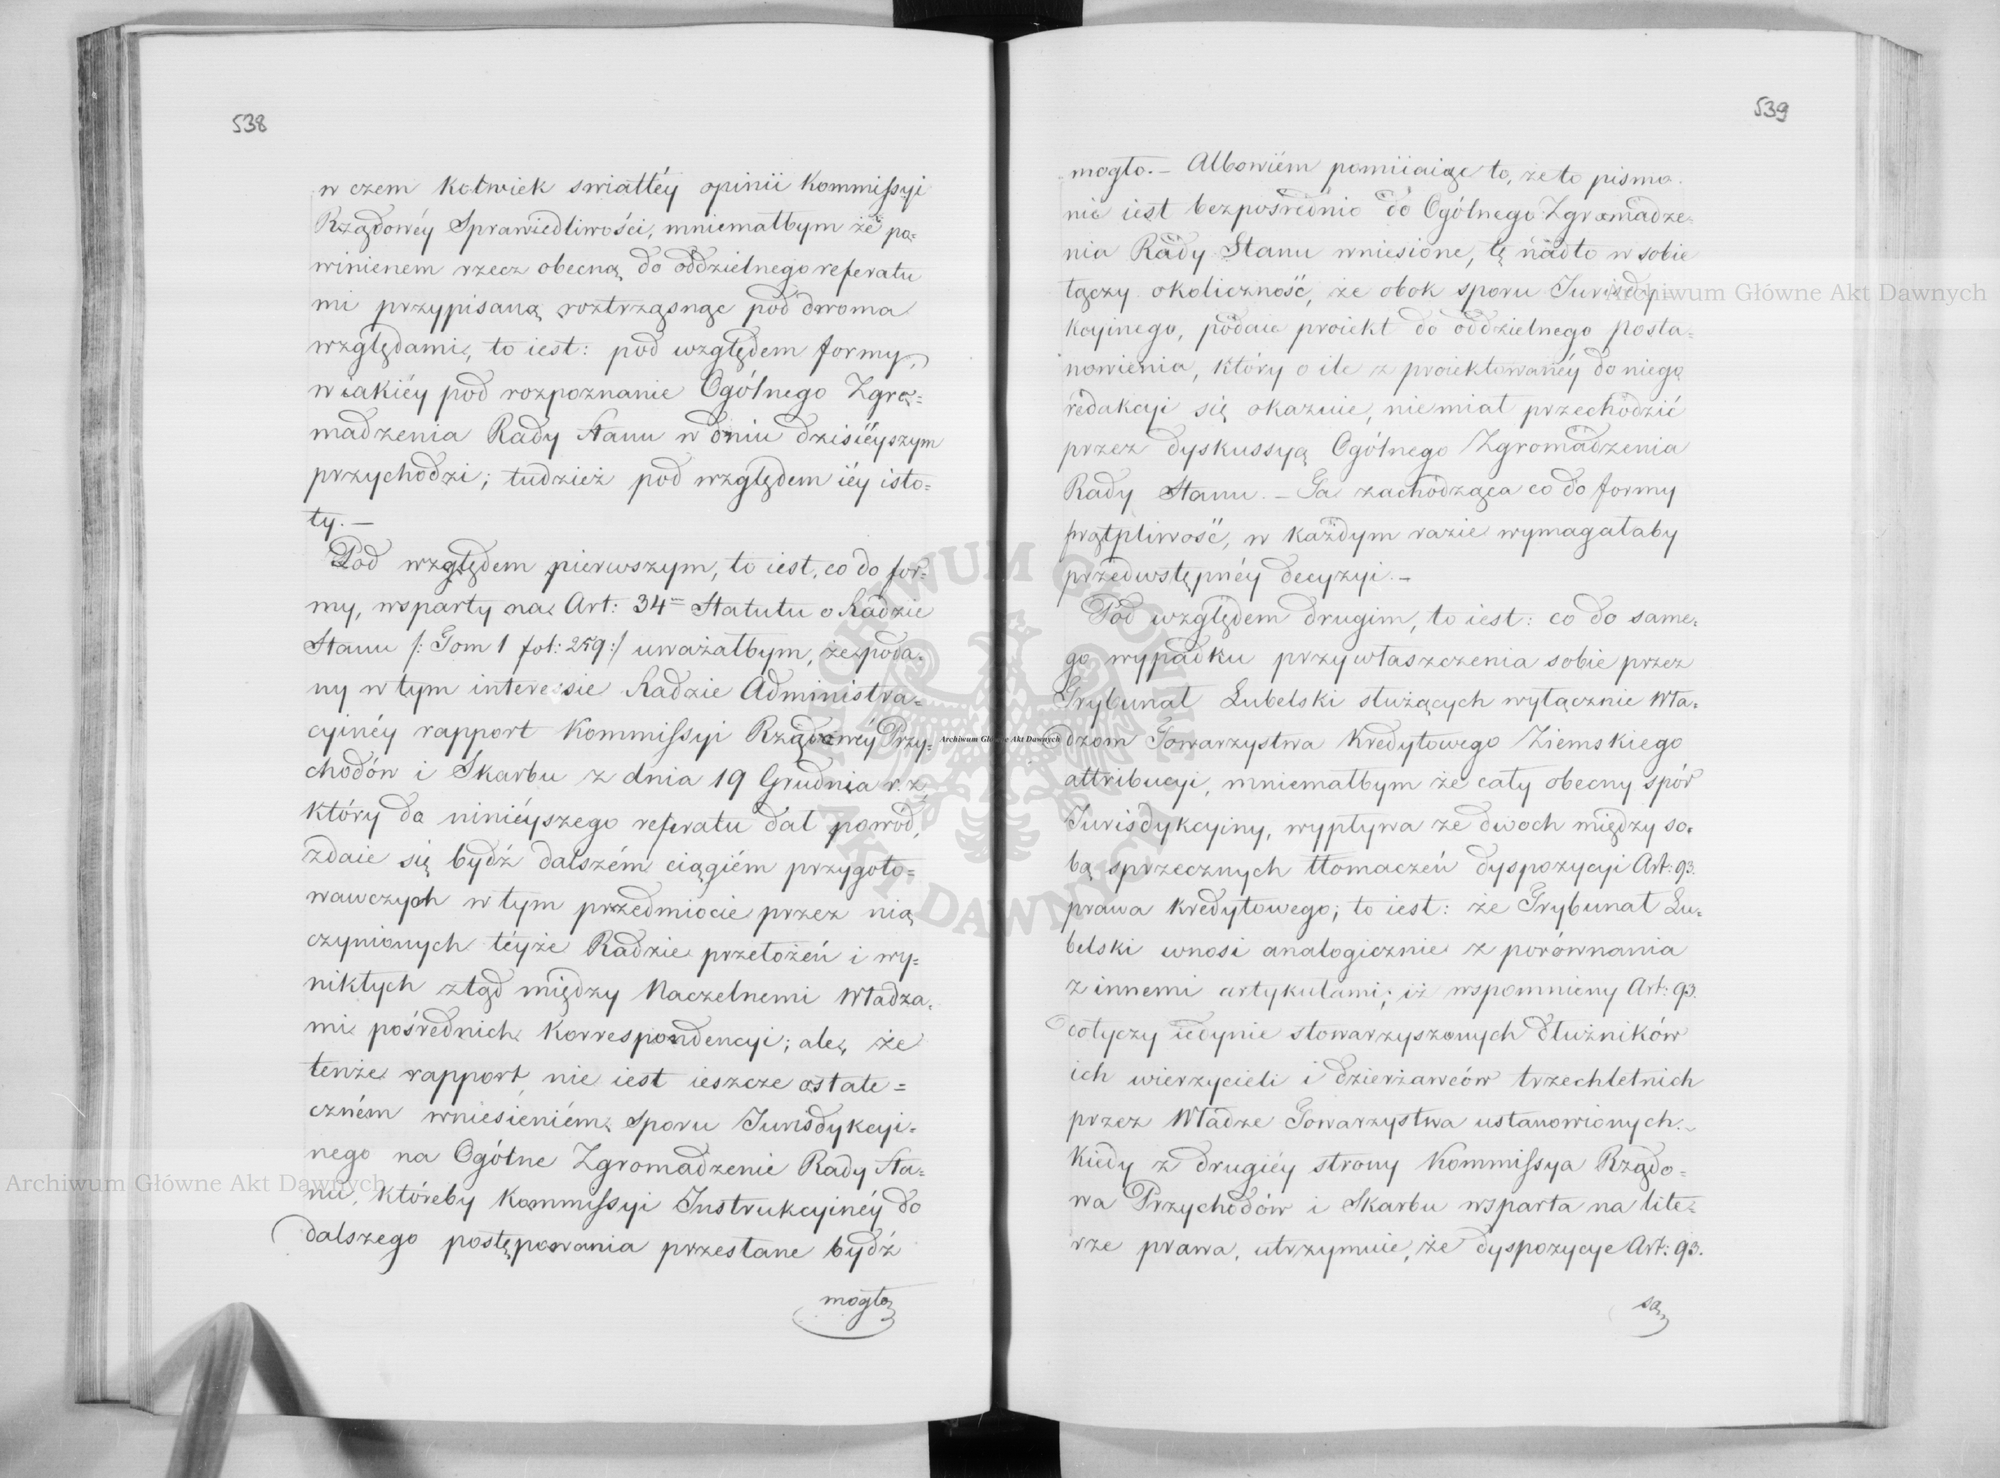 538
w czem kolwiek swiatłéy opinii Kommissyi
Rządowéy Sprawiedliwości, mniemałbym że po=
winienem rzecz obecną do oddzielnego referatu
mi przypisaną roztrząsnąć pod dwoma
względami, to iest: pod względem formy,
w iakiéy pod rozpoznanie Ogólnego Zgro=
madzenia Rady Stanu w dniu dzisiéyszym
przychodzi; tudzież pod względem iéy isto=
ty. —
Pod względem pierwszym, to iest, co do for=
my, wsparty na Art: 34 Statutu o Radzie
Stanu /: Tom 1 fol: 259 :/ uważałbym, że poda=
ny w tym interessie Radzie Administra=
cyinéy rapport Kommissyi Rządowéy Przy=
chodów i Skarbu z dnia 19 Grudnia r. z.
który do niniéyszego referatu dał powód,
zdaie się bydź dalszém ciągiém przygoto=
wawczych w tym przedmiocie przez nią
czynionych téyże Radzie przełożeń i wy=
nikłych ztąd między Naczelnemi Władza=
mi pośrednich korrespondencyi; ale, że
tenże rapport nie iest ieszcze ostate=
czném wniesieniém sporu Jurisdykcyi=
nego na Ogólne Zgromadzenie Rady Sta=
nu, któreby Kommissyi Instrukcyinéy do
dalszego postępowania przesłane bydź
mogło
539
mogło. — Albowiém pomiiaiąc to, że to pismo
nie iest bezpośrednio do Ogólnego Zgromadze=
nia Rady Stanu wniesione, tę nadto w sobie
łączy okoliczność, że obok sporu Jurisdy=
kcyinego, podaie proiekt do oddzielnego posta=
nowienia, który o ile z proiektowanéy do niego
redakcyi się okazuie, niemiał przechodzić
przez dyskussyą Ogólnego Zgromadzenia
Rady Stanu. — Ta zachodząca co do formy
wątpliwość, w każdym razie wymagałaby
przedwstępnéy decyzyi. —
Pod względem drugim, to iest: co do same=
go wypadku przywłaszczenia sobie przez
Trybunał Lubelski służących wyłącznie Wła=
dzom Towarzystwa Kredytowego Ziemskiego
attribucyi, mniemałbym że cały obecny spór
Jurisdykcyiny, wypływa ze dwoch między so=
bą sprzecznych tłomaczeń dyspozycyi Art: 93.
prawa kredytowego; to iest: że Trybunał Lu=
belski wnosi analogicznie z porównania
z innemi artykułami; iż wspomniony Art: 93.
dotyczy iedynie stowarzyszonych dłużników
ich wierzycieli i dzierżawców trzechletnich
przez Władze Towarzystwa ustanowionych. —
Kiedy z drugiéy strony Kommissya Rządo=
wa Przychodów i Skarbu wsparta na lite=
rze prawa, utrzymuie, że dyspozycye Art: 93.
są
Archiwum Główne Akt Dawnych
Archiwum Główne Akt Dawnych
Archiwum Główne Akt Dawnych
ARCHIWUM GŁÓWNE
AKT DAWNYCH